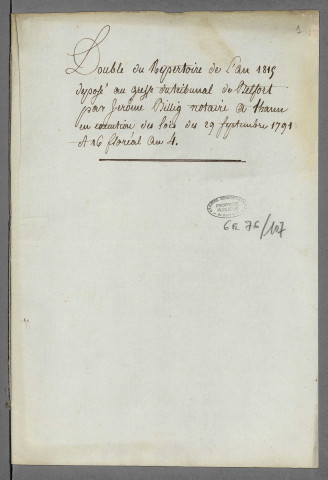 1
Double du Répertoire de l'an 1815
déposé au greffe du tribunal de Belfort
par Jerôme Billig notaire a thann
en execution des lois des 29 Septembre 1791
et 16 floréal an 4.
6E 76/107